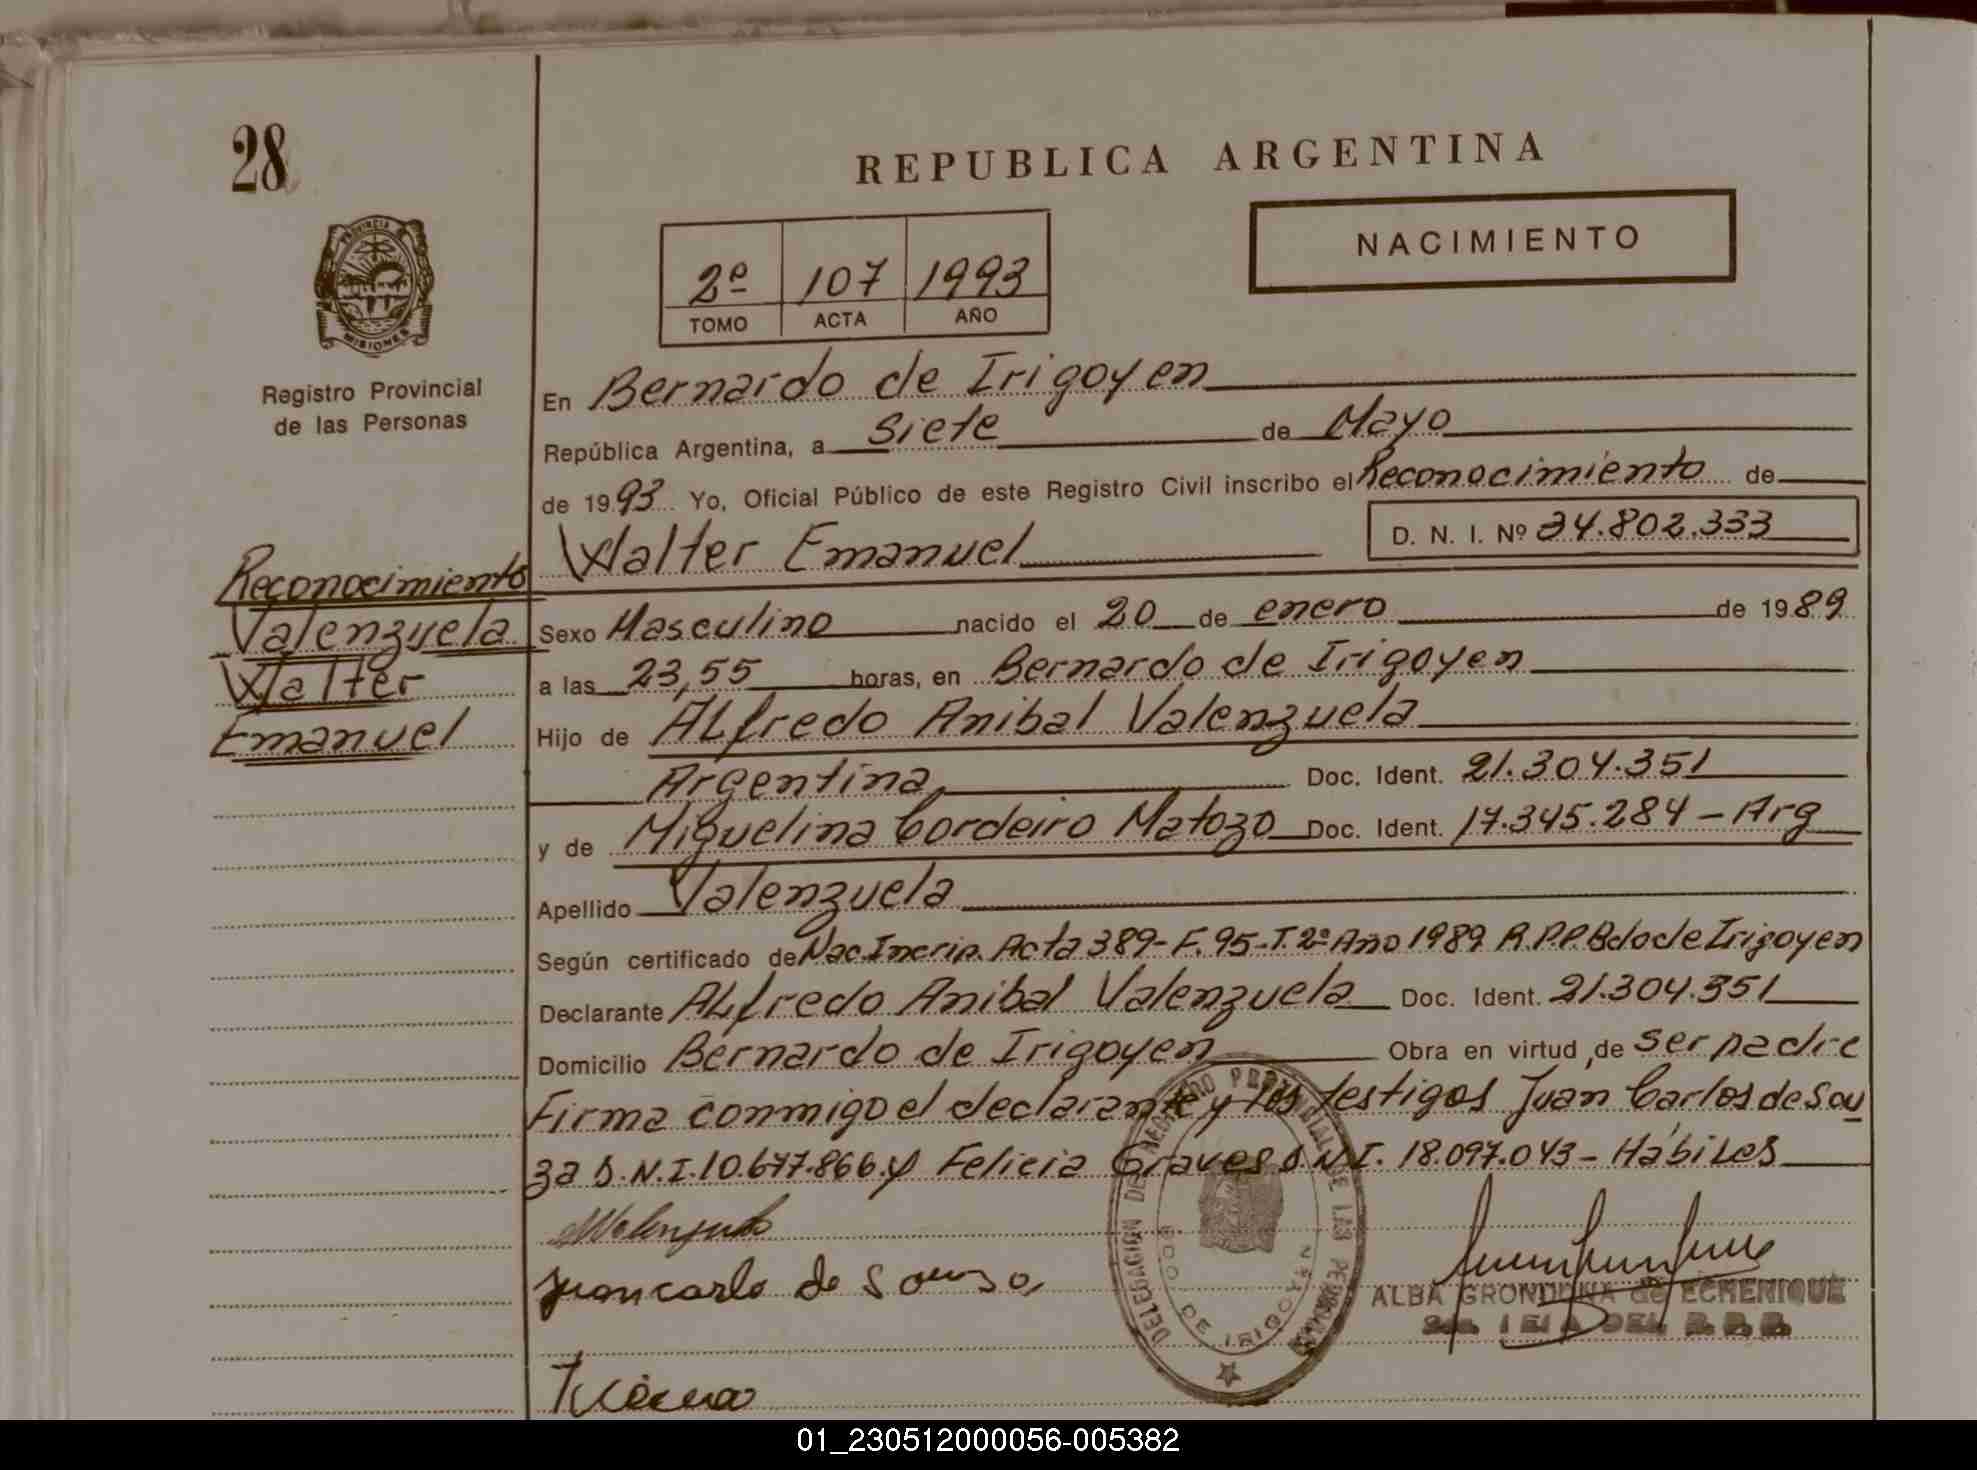 28
REPUBLICA ARGENTINA
NACIMIENTO
2º 107 1993
TOMO ACTA AÑO
PROVINCIA DE MISIONES
Registro Provincial
de las Personas
En Bernardo de Irigoyen
República Argentina, a siete de Mayo
de 1993 Yo, Oficial Público de este Registro Civil inscribo el Reconocimiento de
Walter Emanuel D. N. I. Nº 34.802.333
Reconocimiento
Valenzuela
Walter
Emanuel
Sexo Masculino nacido el 20 de enero de 1989
a las 23,55 horas, en Bernardo de Irigoyen
Hijo de ALfredo Anibal Valenzuela
Argentina Doc. Ident. 21.304.351
y de Miguelina Cordeiro Matozo Doc. Ident. 17.345.284 - Arg
Apellido Valenzuela
Según certificado de Nac. Inscrip. Acta 389- F. 95-T. 2º Año 1989 R.P.P. Bdo de Irigoyen
Declarante ALfredo Anibal Valenzuela Doc. Ident. 21.304.351
Domicilio Bernardo de Irigoyen Obra en virtud de ser padre
Firma conmigo el declarante y los testigos Juan Carlos de Sou
za D.N.I. 10.677.866 y Felicia Graves D.N.I. 18.097.043 - HábiLes
AValenzuela
Juancarlo de Souso
DELEGACION DE REGISTRO PROVINCIAL DE LAS PERSONAS
BDO. DE IRIGOYEN
ALBA GRONDONA de ECHENIQUE
DEL R.P.P.
01_230512000056-005382